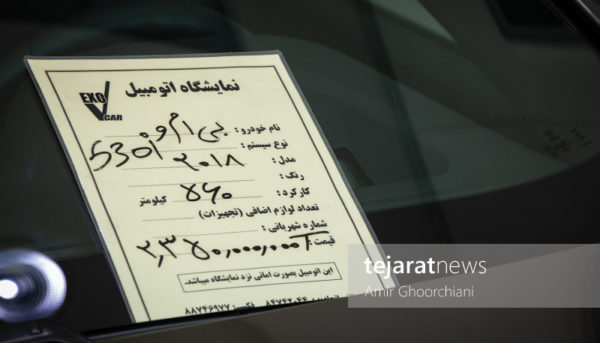 نمایشگاه اتومبیل
EXO
CAR
نام خودرو : بی ام و
نوع سیستم : 530i
مدل : ۲۰۱۸
رنگ :
کارکرد : ۷۶۰ کیلومتر
تعداد لوازم اضافی (تجهیزات) :
شماره شهربانی :
قیمت : ۲,۳۷۰,۰۰۰,۰۰۰T
این اتومبیل بصورت امانی نزد نمایشگاه میباشد.
tejaratnews
Amir Ghoorchiani